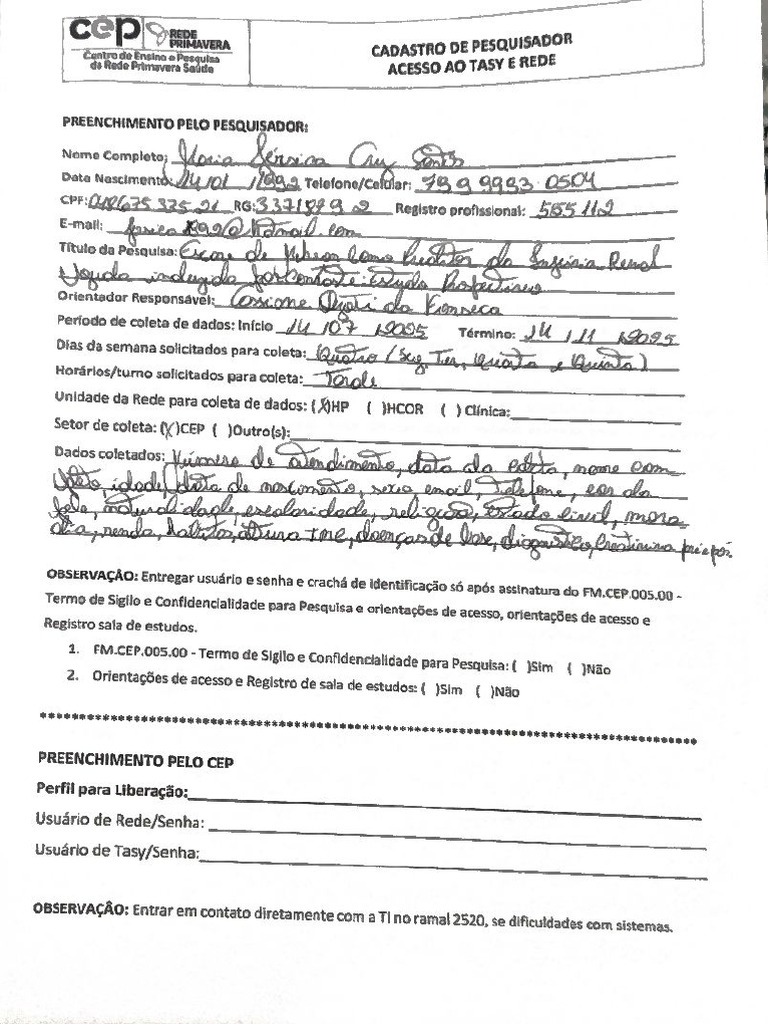 cep REDE PRIMAVERA
Centro de Ensino e Pesquisa
da Rede Primavera Saúde
CADASTRO DE PESQUISADOR
ACESSO AO TASY E REDE
PREENCHIMENTO PELO PESQUISADOR:
Nome Completo: Maria Gérsica Cruz Santos
Data Nascimento: 14/01/1992 Telefone/Celular: 79 9 9993 0504
CPF: RG: 3371899 2 Registro profissional: 555112
E-mail: @hotmail.com
Título da Pesquisa: Escore de Mehran Como Preditor da Injúria Renal
Aguda induzida por contraste: Estudo Prospectivo
Orientador Responsável: da Fonseca
Período de coleta de dados: Início 14/07/2025 Término: 14/11/2025
Dias da semana solicitados para coleta: Quatro (Seg, Ter, Quarta e Quinta)
Horários/turno solicitados para coleta: Tarde
Unidade da Rede para coleta de dados: (X)HP ( )HCOR ( ) Clínica:
Setor de coleta: (X)CEP ( )Outro(s):
Dados coletados: Número de atendimento, data da coleta, nome com-
pleto, idade, data de nascimento, sexo, email, telefone, cor da
pele, naturalidade, escolaridade, religião, estado civil, mora-
dia, renda, hábitos, altura IMC, doenças de base, diagnóstico, creatinina pré e pós.
OBSERVAÇÃO: Entregar usuário e senha e crachá de identificação só após assinatura do FM.CEP.005.00 -
Termo de Sigilo e Confidencialidade para Pesquisa e orientações de acesso, orientações de acesso e
Registro sala de estudos.
1. FM.CEP.005.00 - Termo de Sigilo e Confidencialidade para Pesquisa: ( )Sim ( )Não
2. Orientações de acesso e Registro de sala de estudos: ( )Sim ( )Não
PREENCHIMENTO PELO CEP
Perfil para Liberação:
Usuário de Rede/Senha:
Usuário de Tasy/Senha:
OBSERVAÇÃO: Entrar em contato diretamente com a TI no ramal 2520, se dificuldades com sistemas.